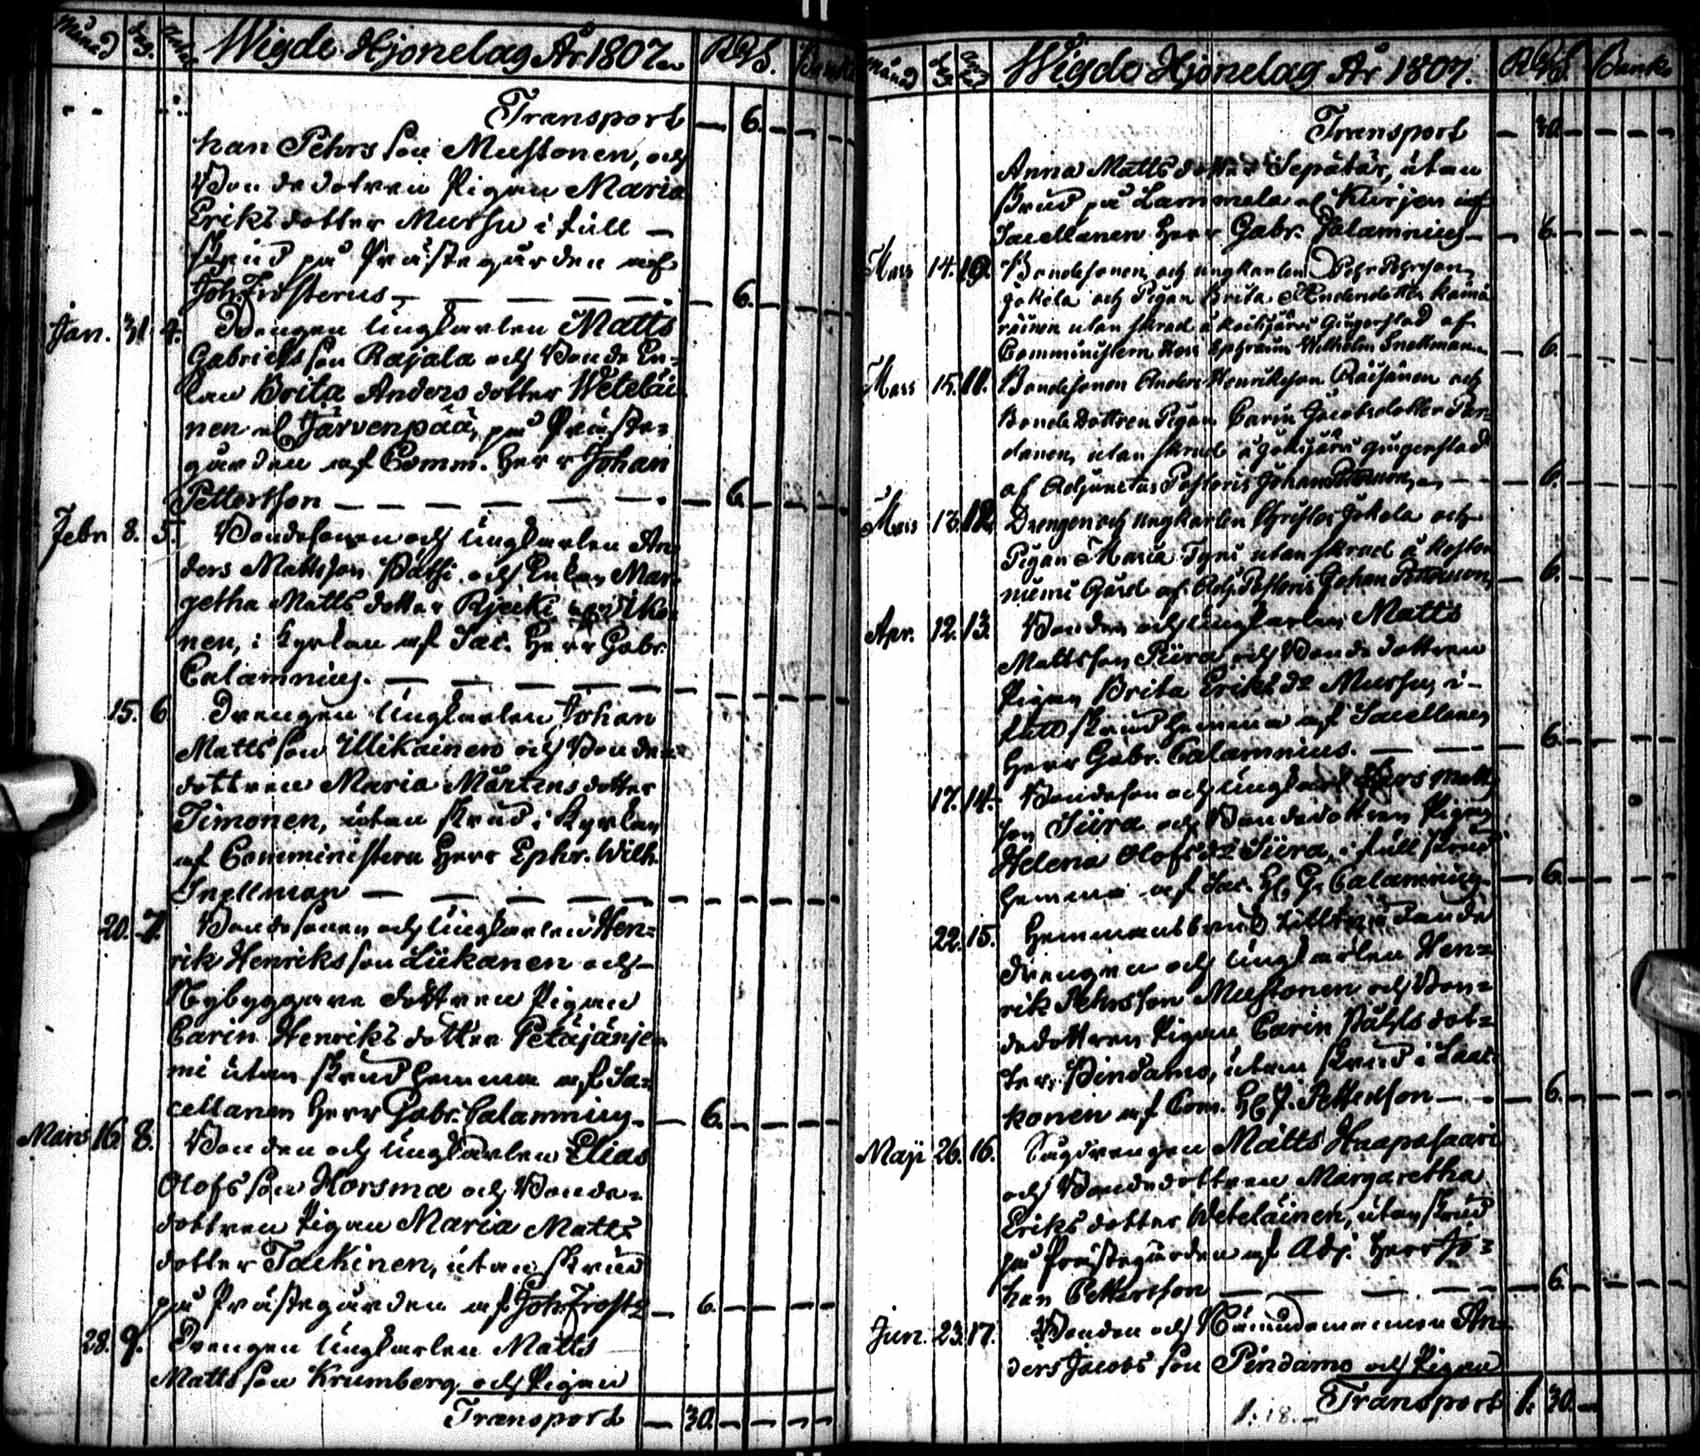 Månad Dag. Wigde Hjonelag År 1807. RGS. Banko
Transport — 6. — — —
han Pehrsson Mustonen, och
Bondedotren Pigan Maria
Eriksdotter Mursu i full —
skrud på Prästegården af
Joh. Frosterus — — — — — 6. — — —
Jan. 31. 4. Drengen Ungkarlen Matts
Gabrielsson Rajala och Bonde En-
kan Brita Andersdotter Wetelai
nen el. Järvenpää, på Präste-
gården af Comm. Herr Johan
Pettersson — — — — — 6. — — —
Febr. 8. 5. Bondesonen och Ungkarlen An
ders Mattsson Påthi och Enkan Mar-
getha Mattsdotter
nen, i Kyrkan af Sac. Herr Gabr.
Calamnius. — — — — — — — —
15. 6 Drengen Ungkarlen Johan
Mattsson Illikainen och Bonde
dottren Maria Mårtensdotter
Timonen, utan skrud i Kyrkan
af Comministern Herr Ephr. Wilh.
Snellman — — — — — — — —
20. 7. Bondesonen och Ungkarlen Hen-
rik Henriksson Liikanen och
Nybyggare dottren Pigan
Carin Henriksdotter Petäjänje
mi utan skrud hemma af Sa-
cellanen Herr Gabr. Calamnius — 6. — — —
Mars 16. 8. Bonden och Ungkarlen Elias
Olofsson Horsma och Bonde-
dottren Pigan Maria Matts
dotter Tackinen, utan skrud
på Prästegården af Joh. Frost — 6. — — —
28. 9. Drengen Ungkarlen Matts
Mattsson Krumberg och Pigan
Transport — 30. — — —
Månad Dag. Wigde Hjonelag År 1807. RGS. Banko
Transport — 30. — — —
Anna Mattsdotter Sepätär, utan
Brud på Lammela el. Kurjen af
Sacellanen Herr Gabr. Calamnius — 6. — — —
Mars 14. 10. Bondesonen och ungkarlen Pehr Pehrson
Jokela och Pigan Brita Andersdotter Kämä
räinen utan skrud å Koikijärvi Gingerstad af
Comministern Herr Ephraim Wilhelm Snellman — 6. — — —
Mars 15. 11. Bondesonen Anders Henriksson Räisänen och
Bonde Dottren Pigan Carin Jacobsdotter Par-
danen, utan skrud å Jokijärvi gingerstad
af Adjunctus Pastoris Johan Petterson — 6. — — —
Mars 17. 12. Drengen och ungkarlen Christer Jokela och
Pigan Maria Tyni utan skrud å Koston
niemi Gård af Adj. Pastoris Johan Petterson — 6. — — —
Apr. 12. 13. Bonden och Ungkarlen Matts
Mattsson Siira och Bondedottren
Pigan Brita Eriksdr Mursu, i
full skrud hemma af Sacellanen
Herr Gabr. Calamnius. — — — 6. — — —
17. 14. Bondeson och Ungkarl Lars Matts
son Siira och Bondedottren Pigan
Helena Olofsdr Siira, i full skrud
hemma af Sac. Hr G. Calamnius — 6. — — —
22. 15. Hemmansbruk tilltrædande
Drengen och Ungkarlen Hen-
rik Pehrsson Mustonen och Bon-
dedottren Pigan Carin Påhlsdot-
ter Pindamo, utan skrud i Laa
konen af Com. Hr J. Petterson — 6. — — —
Maji 26. 16. Sagdrengen Matts Haaposaari
och Bondedottren Margaretha
Eriksdotter Weteläinen, utan skrud
på Prästegården af Adj. Herr Jo-
han Pettersson — — — — 6. — — —
Jun. 23. 17. Bonden och Nämndemannen An-
ders Jacobsson Pindamo och Pigan
1:18. — Transport 1. 30. —